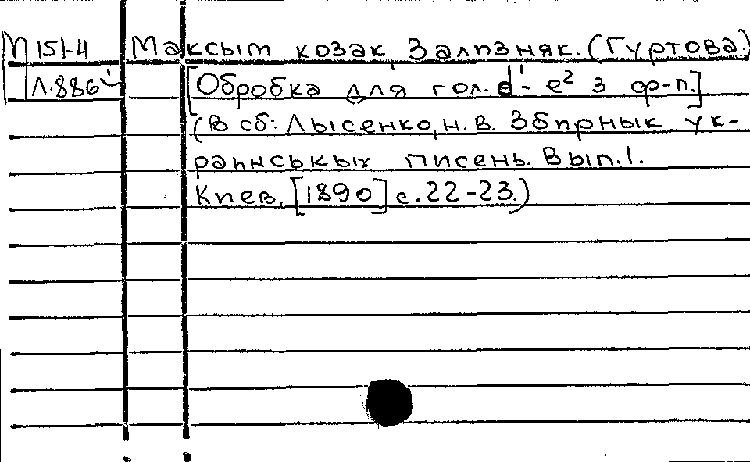 М 151-4 Максым козак Залпзняк. (Гуртова.)
Л.886 [Обробка для гол. d¹- e² з ф-п.]
(В сб: Лысенко, н. в. Збпрнык ук-
рапнськых писень. Вып. I.
Кпев. [1890] с. 22-23.)